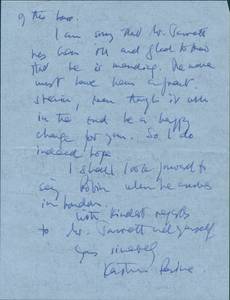 of the
I am sorry that Mr. Garrett
has been ill and glad to know
that he is mending. The move
must have been a great
strain, even though it will
in the end be a happy
change for you. So I do
indeed hope
I shall look forward to
seeing Robin when he arrives
in London.
With kindest regards
to Mr. Garrett and yourself
Yours sincerely
Kathleen Raine